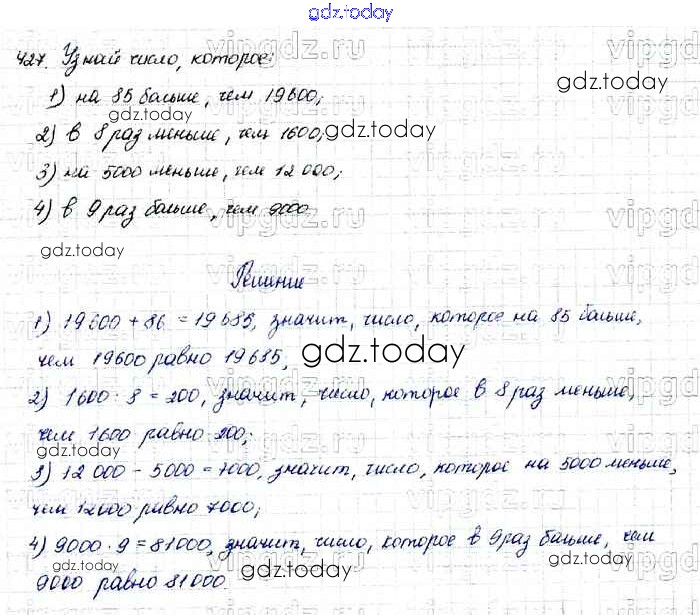 gdz.today
427. Узнай число, которое:
1) на 85 больше, чем 19600;
gdz.today
2) в 8 раз меньше, чем 1600;
gdz.today
3) на 5000 меньше, чем 12 000;
4) в 9 раз больше, чем 9000
gdz.today
vipgdz.ru
Решение
1) 19600 + 86 = 19685, значит, число, которое на 85 больше,
чем 19600 равно 19685,
gdz.today
2) 1600 : 8 = 200, значит, число, которое в 8 раз меньше,
чем 1600 равно 200;
gdz.today
3) 12 000 - 5000 = 7000, значит, число, которое на 5000 меньше,
чем 12000 равно 7000;
4) 9000 · 9 = 81000, значит, число, которое в 9 раз больше, чем
9000 равно 81000
gdz.today
gdz.today